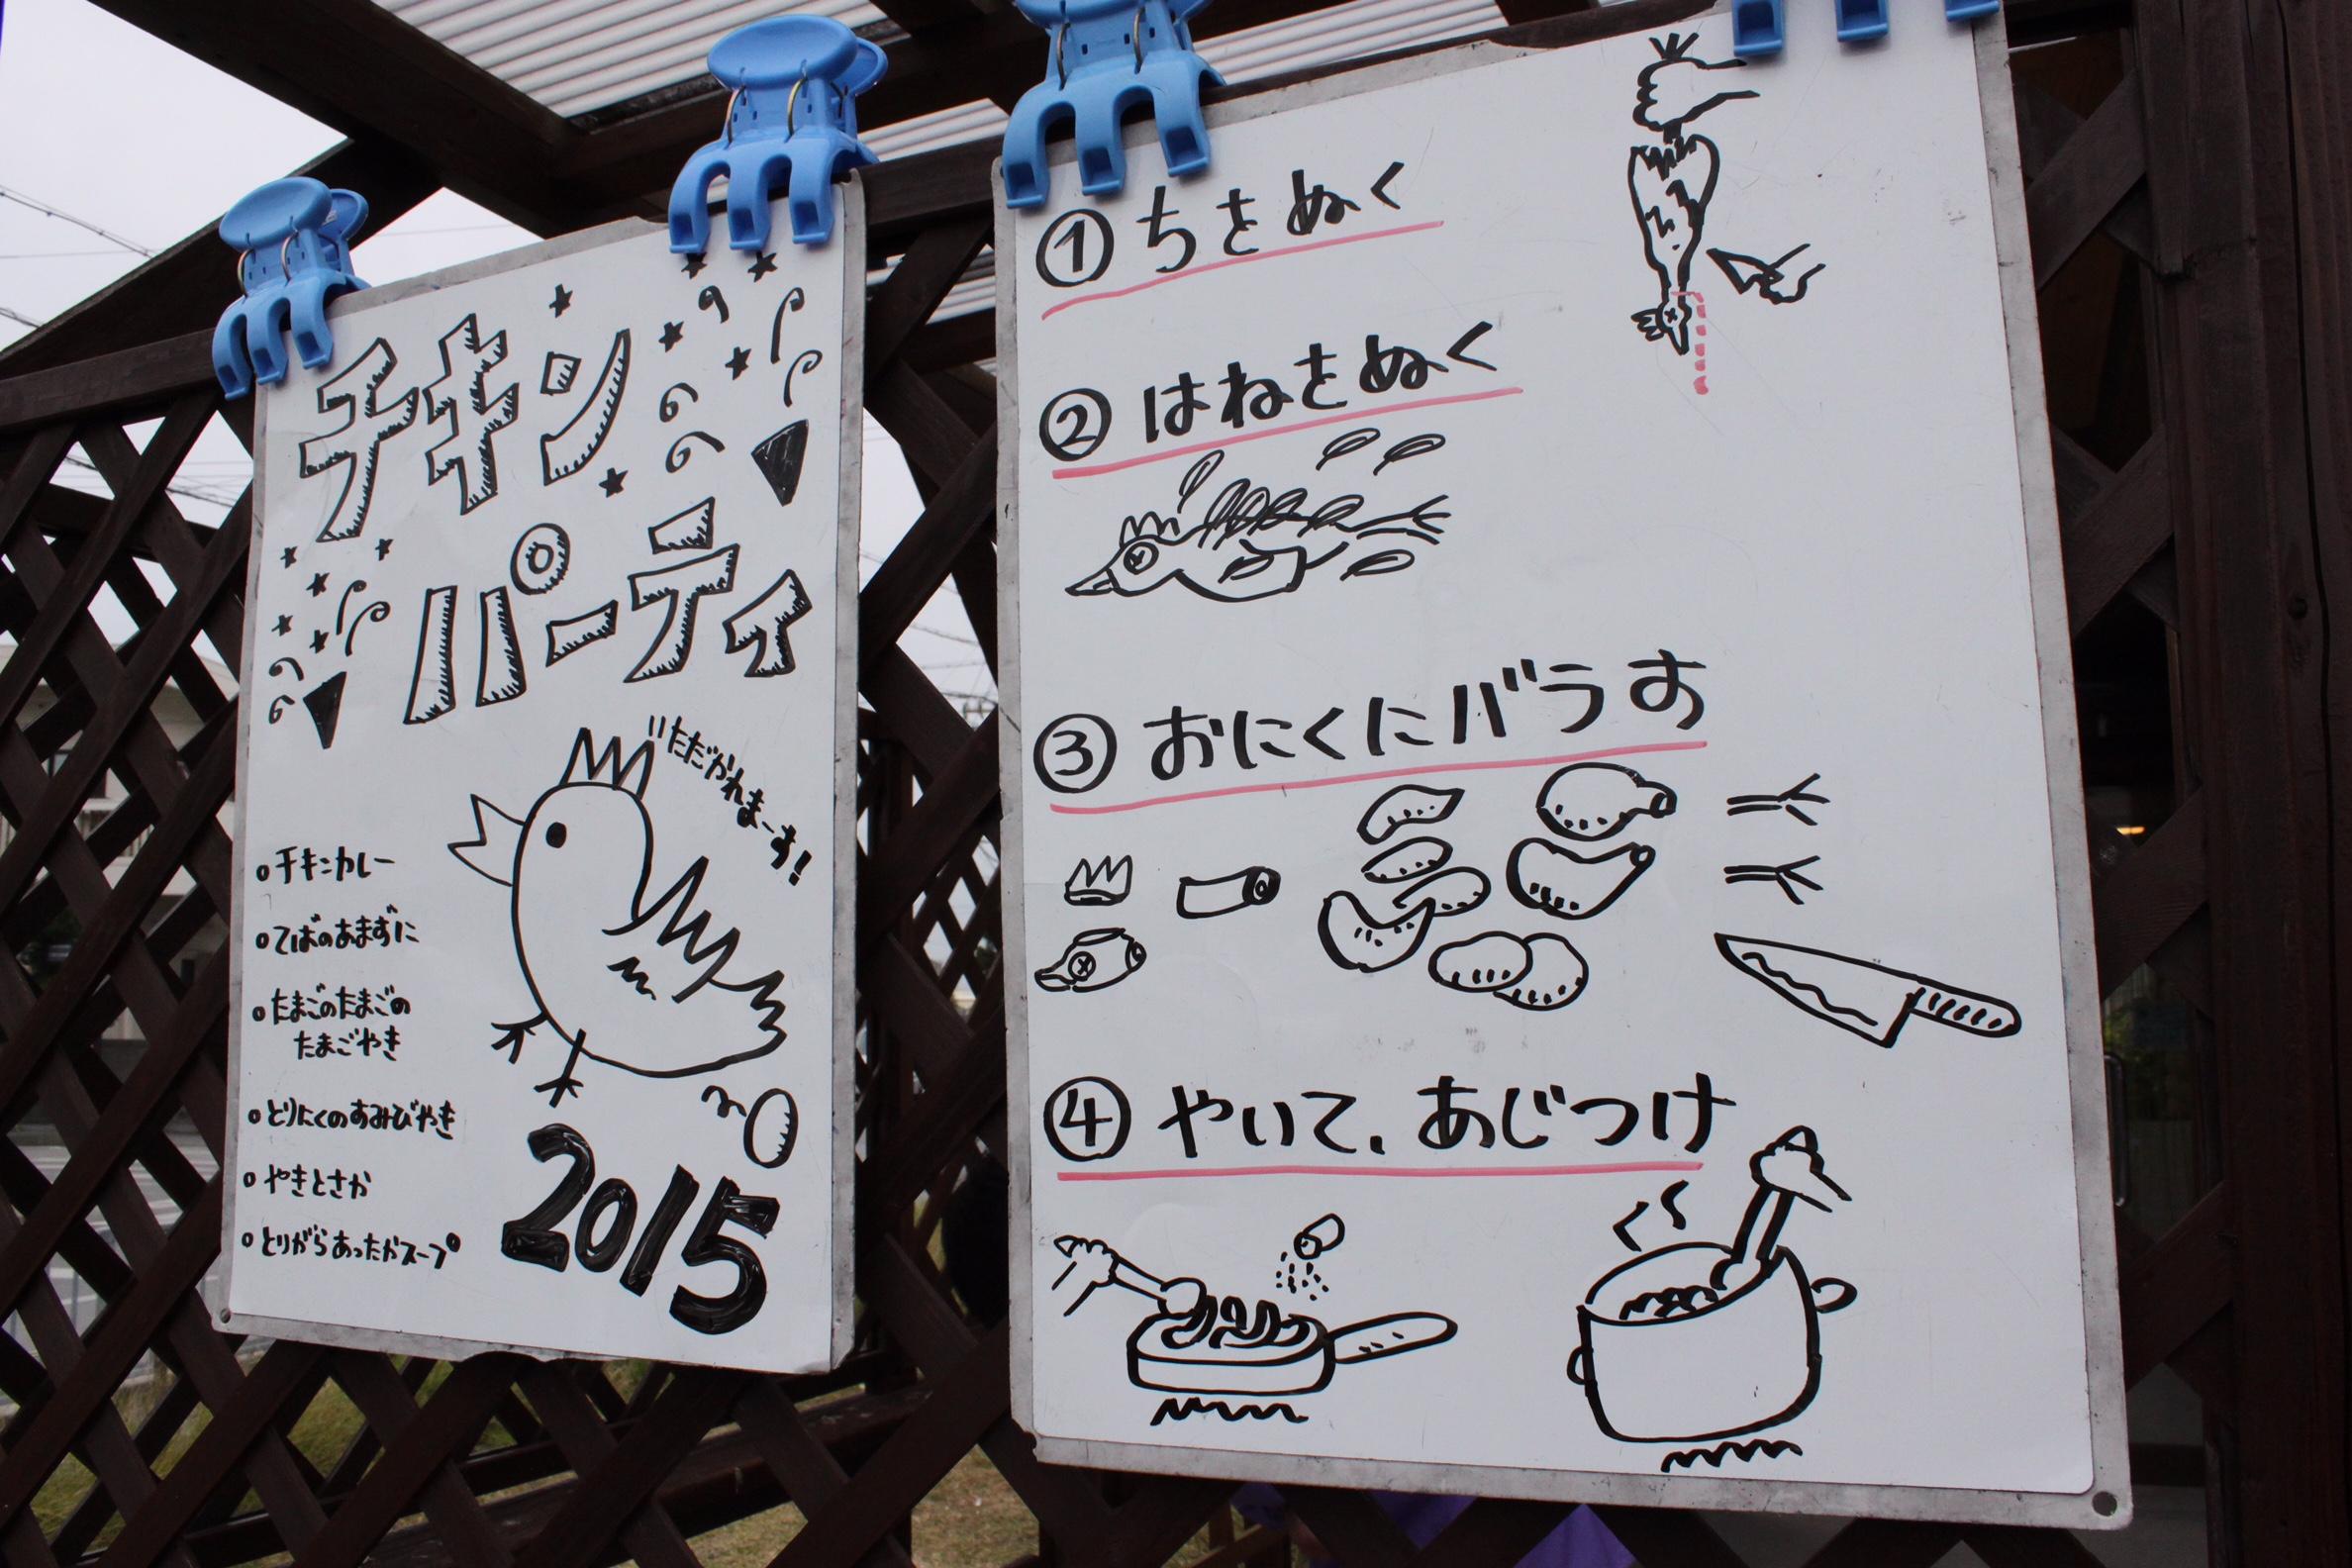 チキン
パーティ
いただかれまーす!
。チキンカレー
。てばのあまずに
。たまごのたまごの
たまごやき
。とりにくのすみびやき
。やきとさか
。とりがらあったかスープ
2015
① ちをぬく
② はねをぬく
③ おにくにバラす
④ やいて、あじつけ